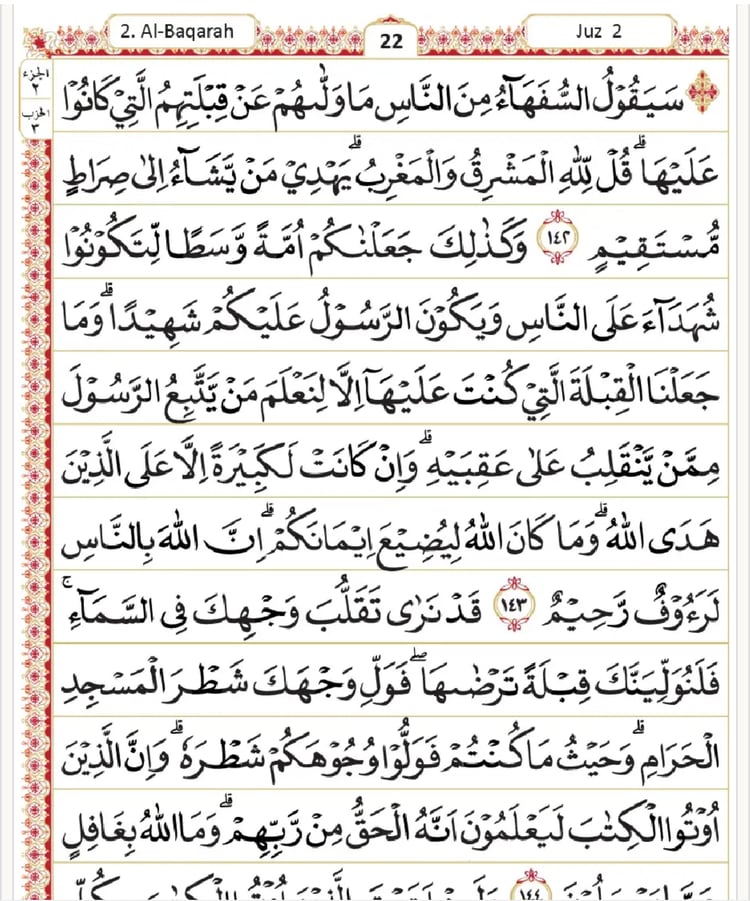 2. Al-Baqarah
22
Juz 2
الجزء
٢
الحزب
٣
سَيَقُوْلُ السُّفَهَاۤءُ مِنَ النَّاسِ مَا وَلّٰىهُمْ عَنْ قِبْلَتِهِمُ الَّتِيْ كَانُوْا
عَلَيْهَا ۗ قُلْ لِّلّٰهِ الْمَشْرِقُ وَالْمَغْرِبُ ۗ يَهْدِيْ مَنْ يَّشَاۤءُ اِلٰى صِرَاطٍ
مُّسْتَقِيْمٍ ١٤٢ وَكَذٰلِكَ جَعَلْنٰكُمْ اُمَّةً وَّسَطًا لِّتَكُوْنُوْا
شُهَدَاۤءَ عَلَى النَّاسِ وَيَكُوْنَ الرَّسُوْلُ عَلَيْكُمْ شَهِيْدًا ۗ وَمَا
جَعَلْنَا الْقِبْلَةَ الَّتِيْ كُنْتَ عَلَيْهَآ اِلَّا لِنَعْلَمَ مَنْ يَّتَّبِعُ الرَّسُوْلَ
مِمَّنْ يَّنْقَلِبُ عَلٰى عَقِبَيْهِ ۗ وَاِنْ كَانَتْ لَكَبِيْرَةً اِلَّا عَلَى الَّذِيْنَ
هَدَى اللّٰهُ ۗ وَمَا كَانَ اللّٰهُ لِيُضِيْعَ اِيْمَانَكُمْ ۗ اِنَّ اللّٰهَ بِالنَّاسِ
لَرَءُوْفٌ رَّحِيْمٌ ١٤٣ قَدْ نَرٰى تَقَلُّبَ وَجْهِكَ فِى السَّمَاۤءِ ۚ
فَلَنُوَلِّيَنَّكَ قِبْلَةً تَرْضٰىهَا ۖ فَوَلِّ وَجْهَكَ شَطْرَ الْمَسْجِدِ
الْحَرَامِ ۗ وَحَيْثُ مَا كُنْتُمْ فَوَلُّوْا وُجُوْهَكُمْ شَطْرَهٗ ۗ وَاِنَّ الَّذِيْنَ
اُوْتُوا الْكِتٰبَ لَيَعْلَمُوْنَ اَنَّهُ الْحَقُّ مِنْ رَّبِّهِمْ ۗ وَمَا اللّٰهُ بِغَافِلٍ
١٤٤